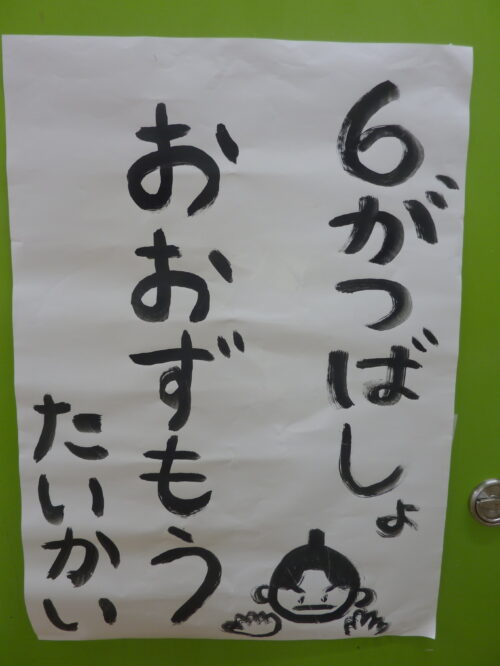 6がつばしょ
おおずもう
たいかい